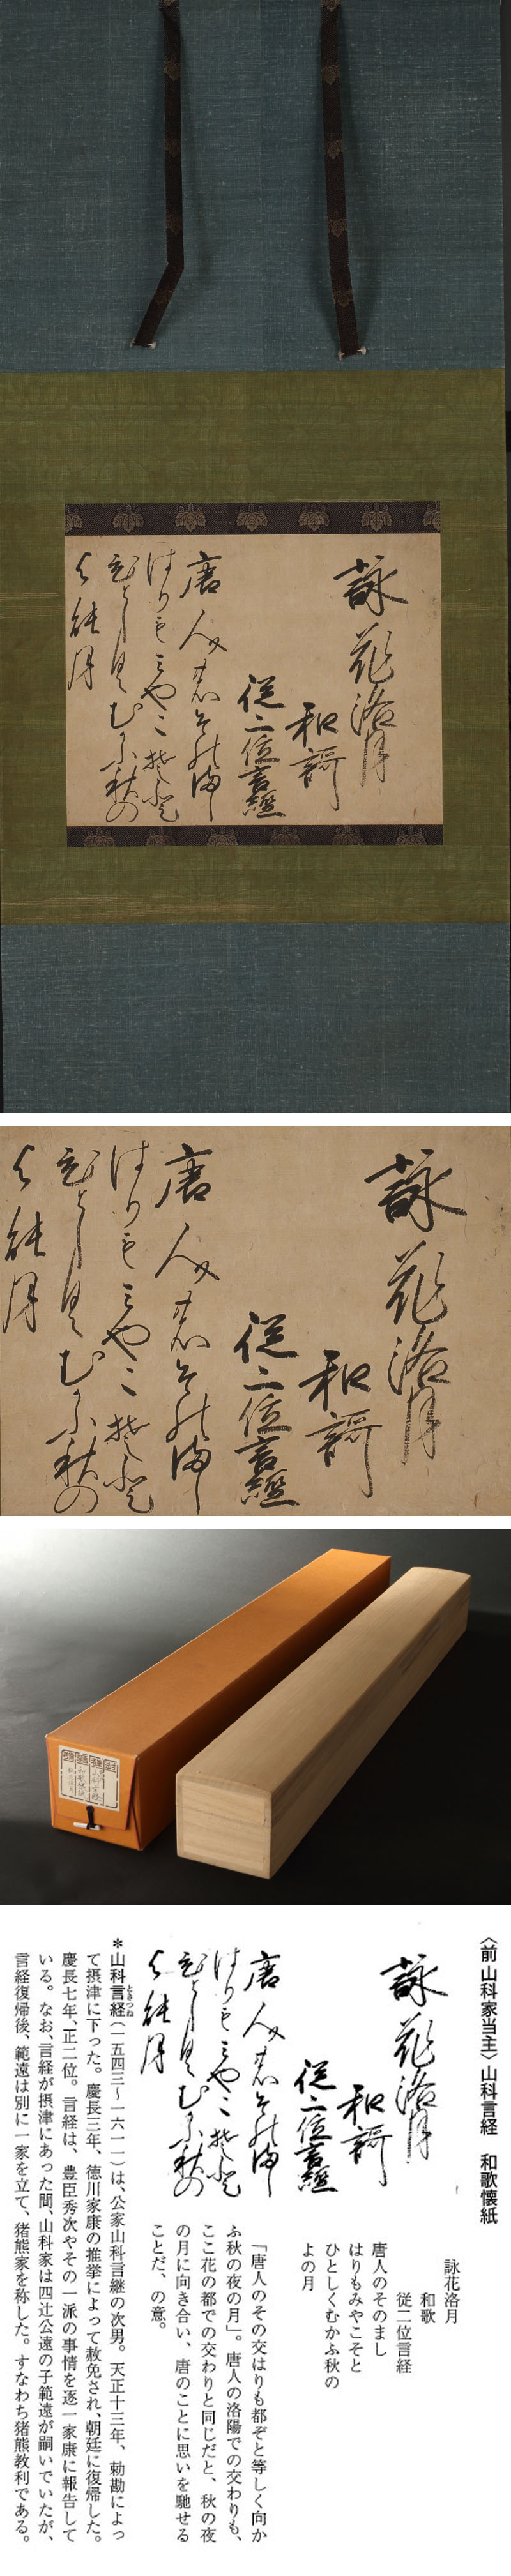 詠花洛月
和謌
従二位言經
唐人のそのまし
はりもみやこそと
ひとしくむかふ秋の
よの月
詠花洛月
和謌
従二位言經
唐人のそのまし
はりもみやこそと
ひとしくむかふ秋の
よの月
〈前山科家当主〉山科言経　和歌懐紙
詠花洛月
和謌
従二位言經
唐人のそのまし
はりもみやこそと
ひとしくむかふ秋の
よの月
詠花洛月
和歌
従二位言経
唐人のそのまし
はりもみやこそと
ひとしくむかふ秋の
よの月
「唐人のその交はりも都ぞと等しく向か
ふ秋の夜の月」。唐人の洛陽での交わりも、
ここ花の都での交わりと同じだと、秋の夜
の月に向き合い、唐のことに思いを馳せる
ことだ、の意。
＊山科言経（一五四三～一六一一）は、公家山科言継の次男。天正十三年、勅勘によっ
ときつね
て摂津に下った。慶長三年、徳川家康の推挙によって赦免され、朝廷に復帰した。
慶長七年、正二位。言経は、豊臣秀次やその一派の事情を逐一家康に報告して
いる。なお、言経が摂津にあった間、山科家は四辻公遠の子範遠が嗣いでいたが、
言経復帰後、範遠は別に一家を立て、猪熊家を称した。すなわち猪熊教利である。